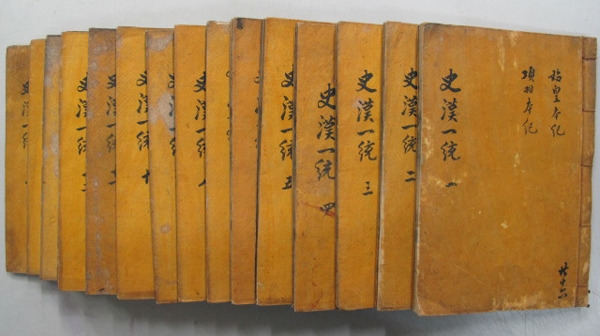 始皇本紀
項羽本紀
共十六
史漢一統 一
史漢一統 二
史漢一統 三
史漢一統 四
史漢一統 五
史漢一統 八
史漢一統 十
史漢一統
史漢一統
史漢一統